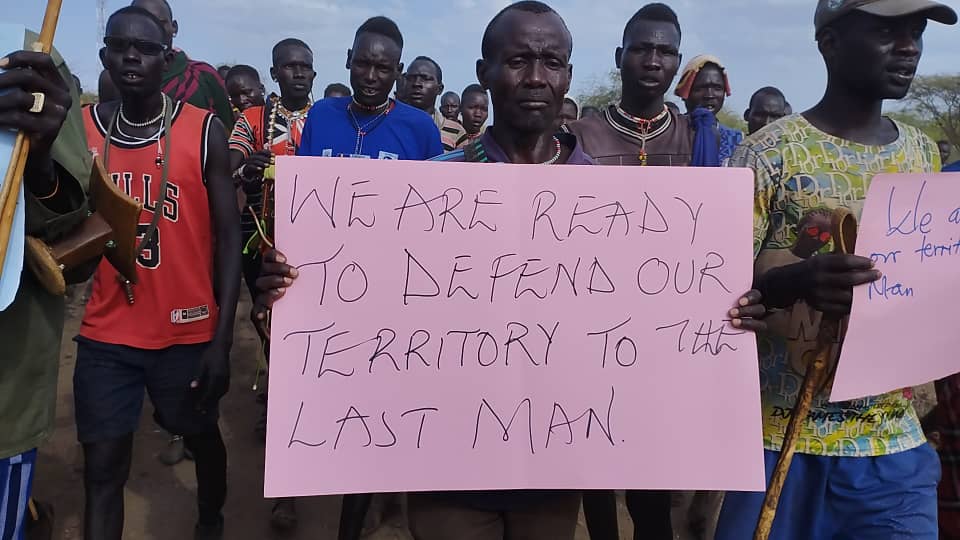 WE ARE READY
TO DEFEND OUR
TERRITORY TO THE
LAST MAN.
We a
our territ
Man